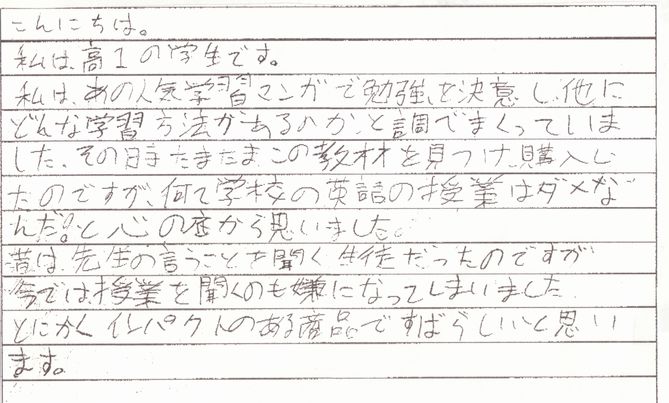 こんにちは。
私は、高1の学生です。
私は、あの人気学習マンガで勉強を決意し、他に
どんな学習方法があるのか、と調べまくっていま
した。その時たまたまこの教材を見つけ、購入し
たのですが、何て学校の英語の授業はダメな
んだ!と心の底から思いました。
昔は、先生の言うことを聞く生徒だったのですが
今では授業を聞くのも嫌になってしまいました
とにかくインパクトのある商品ですばらしいと思い
ます。